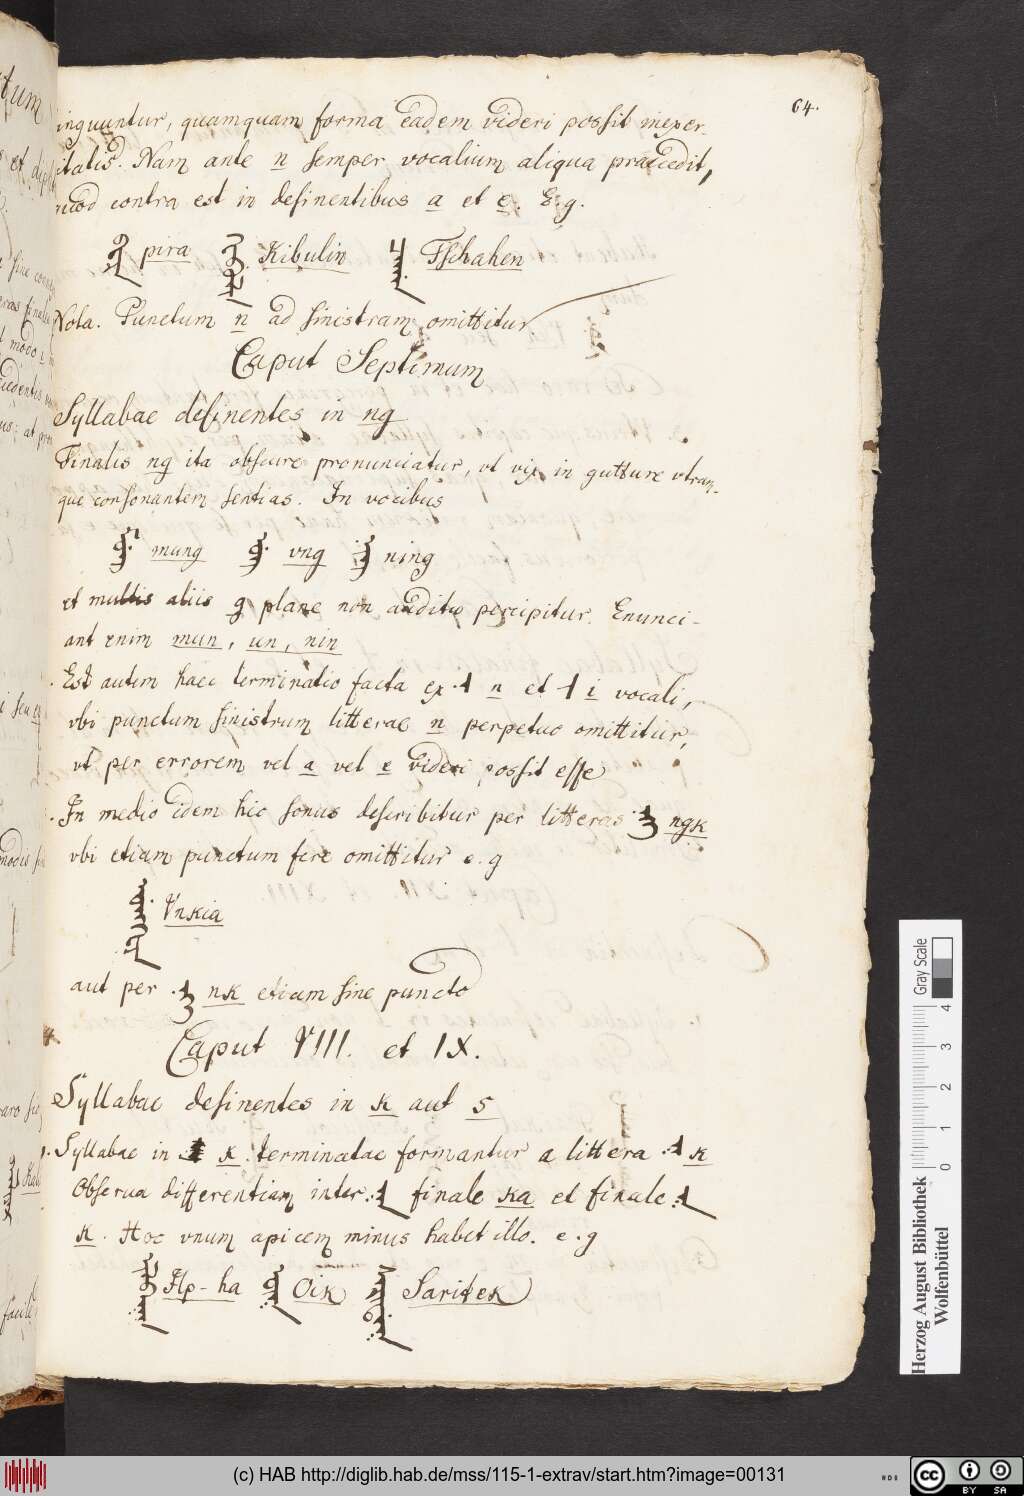 64.
inguuntur, quamquam forma eadem videri possit inexer-
itatis. Nam ante n semper vocalium aliqua praecedit,
quod contra est in desinentibus a et e. E.g.
pira Kibulin Tschahen
Nota. Punctum n ad sinistram omittitur
Caput Septimum
Syllabae desinentes in ng
Finalis ng ita obscure pronunciatur, vt vix in gutture vtram-
que consonantem sentias. In vocibus
mung vng ning
et multis aliis g plane non auditu percipitur. Enunci-
ant enim mun, un, nin
Est autem haec terminatio facta ex n et i vocali,
vbi punctum sinistrum litterae n perpetuo omittitur,
vt per errorem vel a vel e videri possit esse
In medio idem hic sonus describitur per litteras ngk
vbi etiam punctum fere omittitur e.g
Vnkia
aut per nk etiam sine puncto
Caput VIII. et IX.
Syllabae desinentes in k aut s
1. Syllabae in k terminatae formantur a littera k
Obserua differentiam inter finale ka et finale
k. Hoc vnum apicem minus habet illo. e.g
Ilp-ha Oik Saritek
Herzog August Bibliothek
Wolfenbüttel
Gray Scale
0 1 2 3 4
(c) HAB http://diglib.hab.de/mss/115-1-extrav/start.htm?image=00131
cc BY SA